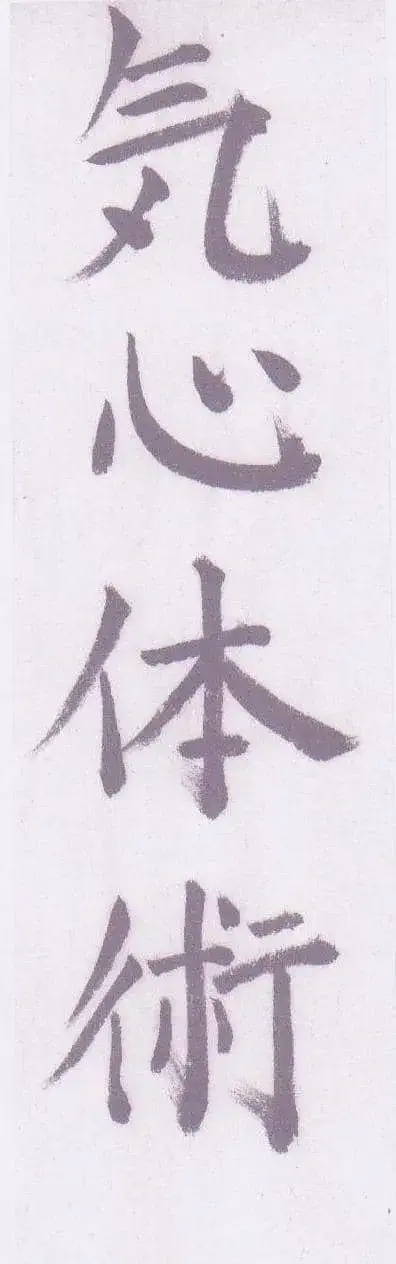 気心体術